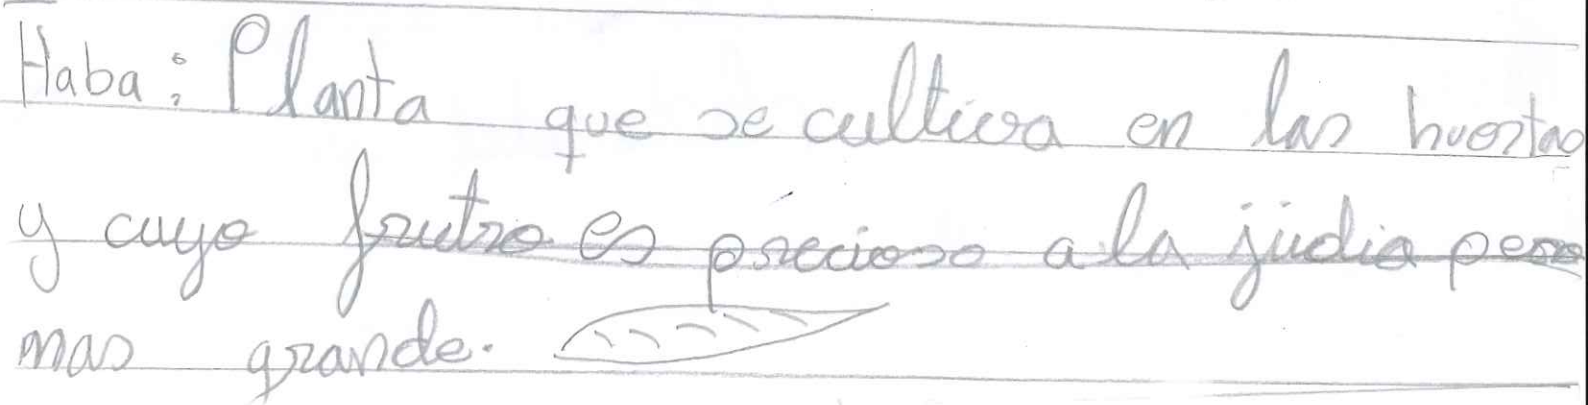 Haba: Planta que se cultiva en las huertas
y cuyo frutro es precioso a la judia pero
mas grande.